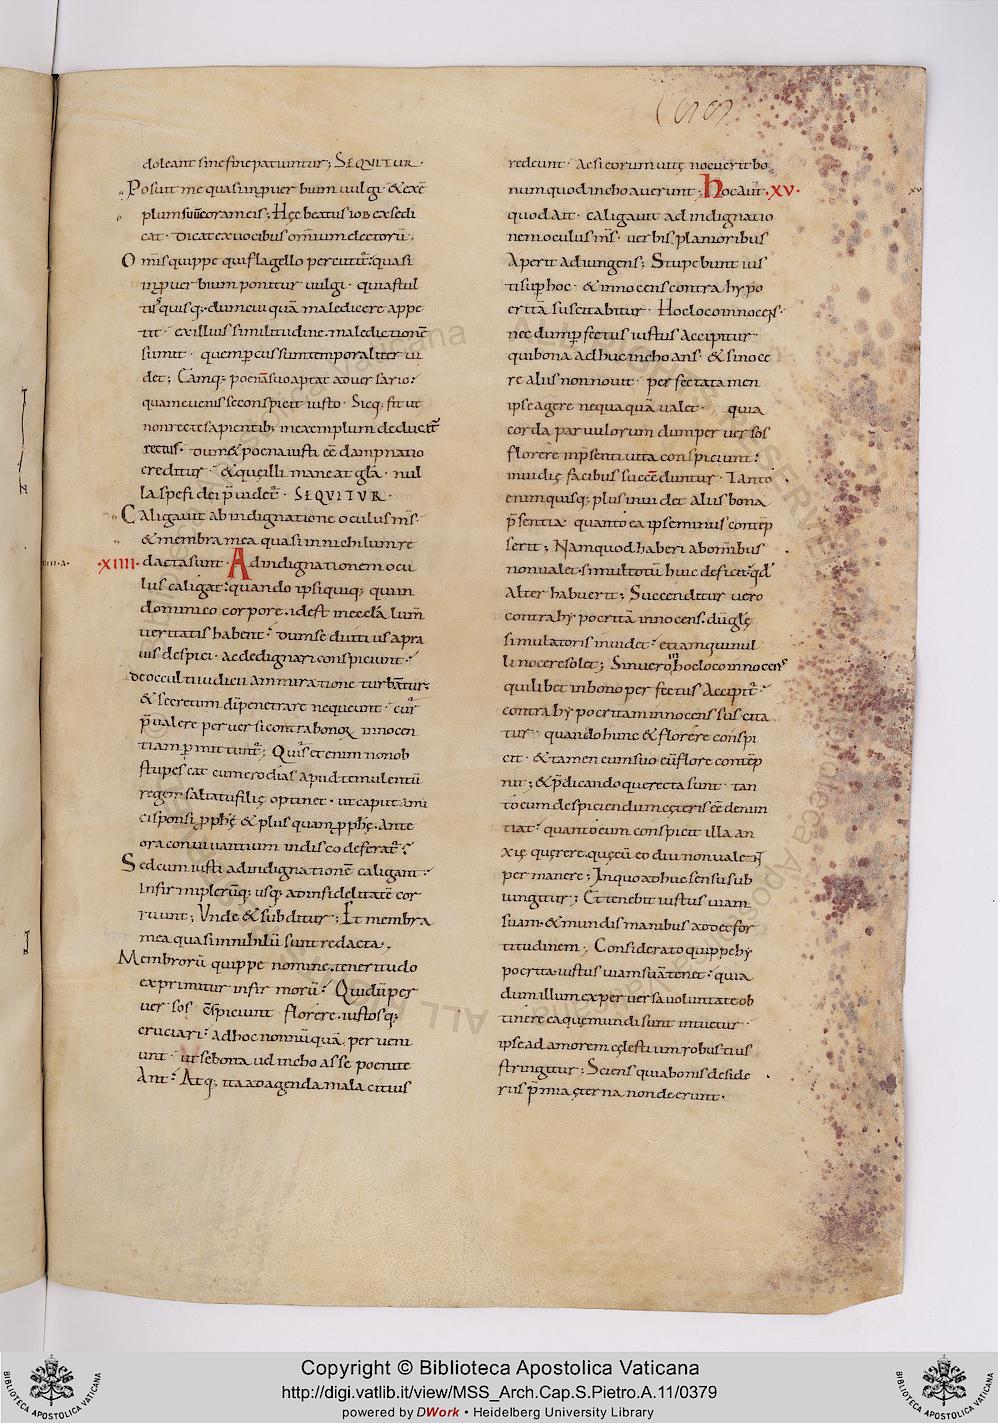 doleant sine fine patiuntur; SEQUITUR.
Posuit me quasi in ꝓverbium vulgi & exē
plum sum coram eis; Hęc beatus iob ex se di
cat. dicat ex vocibus omnium electorū.
Omīs quippe qui flagello percutit᷑: quasi
inꝓverbium ponitur vulgi. quia stul
tus quisq; dum cui quā maledicere appe
tit. ex illius similitudine maledictionē
sumit. quem peius sum temporaliter vi
det; Eamq; poenā suo aptat adversario:
quam evenisse conspicit iusto. Sicq; fit ut
non recte sapientib; in exemplum deduct᷑
rectus. dum & poena iusti eē dampnatio
creditur. & quę illi maneat gl̄a. nul
la spe fidei p̄videt᷑. SEQUITUR.
Caligavit ab indignatione oculus m̄s.
& membra mea quasi in nichilum re
·XIIII· dacta sunt. Ad indignationem ocu
lus caligat: quando ipsi quiq; qui in
dominico corpore. id est in ęccl̄a lum̄
veritatis habent: dum se diutius a pra
vis despici. ac dedignari conspiciunt:
de occulti iudicii ammiratione turbant᷑:
& secretum di penetrare nequeunt. cur
p̄valere perversi contra bonoꝝ innocen
tiam ꝑmittunt᷑; Quis etenim non ob
stupescat cum erodias apud temulentū
regem saltatu filię optinet. ut caput ami
ci sponsi ꝓph̄ę & plus quam ꝓph̄ę. ante
ora convivantium in disco deferat᷑:
Sed cum iusti ad indignationē caligant:
infirmi plerūq; usq; ad infidelitatē cor
ruunt; Unde & subditur; Et membra
mea quasi in nihilū sunt redacta.
Membrorū quippe nomine. teneritudo
exprimitur infirmorū: Qui dū per
versos c̄spiciunt florere. iustosq;
cruciari: ad hoc nonnūquā perveni
unt. ut se bona vel inchoasse poenite
ant: Atq; ita ad agenda mala citius
redeunt. ac si eorum vitę nocuerit bo
num quod inchoaverunt; Hoc aūt ·XV·
quod ait. caligavit ad indignatio
nem oculus m̄s. verbis planioribus
aperit adiungens; Stupebunt ius
ti sup hoc. & innocens contra hypo
critā suscitabitur. Hoc loco innocens.
nec dum ꝑfectus iustus accipitur.
qui bona adhuc inchoans. & si noce
re aliis non novit. perfecta tamen
ipse agere nequaquā valet. quia
corda parvulorum dum perversos
florere in p̄senti vita conspiciunt:
invidię facibus succēduntur. Tanto
enim quisq; plus invidet aliis bona
p̄sentia. quanto ea ipse minus contēp
serit; Nam quod haberi ab om̄ibus
non valet. simul totū huic deficit: qd̄
alter habuerit; Succenditur vero
contra hypocritā innocens. dū glę
simulatoris invidet: etiam qui nul
li nocere solet; Si vero in hoc loco innocens
quilibet in bono perfectus accipit᷑:
contra hypocritam innocens suscita
tur. quando hunc & florere conspi
cit. & tamen cum suo eū flore contēp
nit; & p̄dicando quę recta sunt. tan
to eum despiciendum cęteris eē denun
tiat: quanto eum conspicit illa an
xię quęrere. quę cū eo diu non valent
permanere; In quo adhuc sensu sub
iungitur; Et tenebit iustus viam
suam. & mundis manibus addet for
titudinem; Considerato quippe hy
pocrita. iustus viam suā tenet: quia
dum illum ex perversa voluntate ob
tinere ea quę mundi sunt intuetur.
ipse ad amorem cęlestium robustius
stringitur; Sciens quia bonis deside
riis p̄mia ęterna non deerunt.
Copyright © Biblioteca Apostolica Vaticana
http://digi.vatlib.it/view/MSS_Arch.Cap.S.Pietro.A.11/0379
powered by DWork • Heidelberg University Library